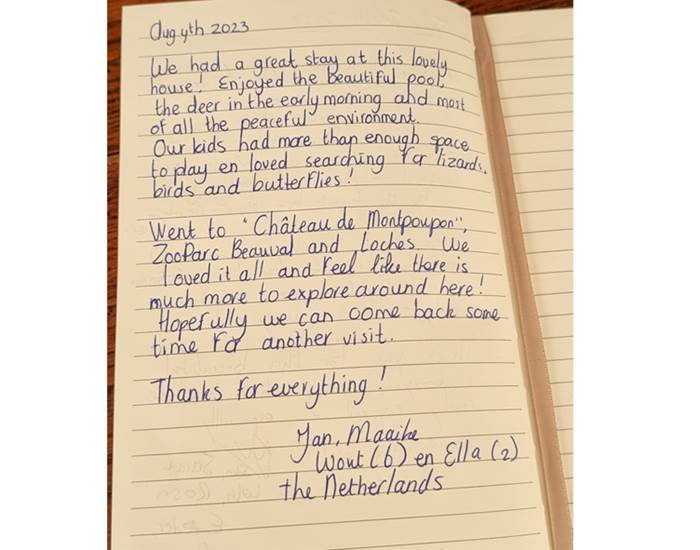 Aug 4th 2023
We had a great stay at this lovely
house! Enjoyed the beautiful pool,
the deer in the early morning and most
of all the peaceful environment.
Our kids had more than enough space
to play en loved searching for lizards,
birds and butterflies!
Went to "Château de Montpoupon",
ZooParc Beauval and Loches. We
loved it all and feel like there is
much more to explore around here!
Hopefully we can come back some
time for another visit.
Thanks for everything!
Jan, Maaike
Wout (6) en Ella (2)
the Netherlands